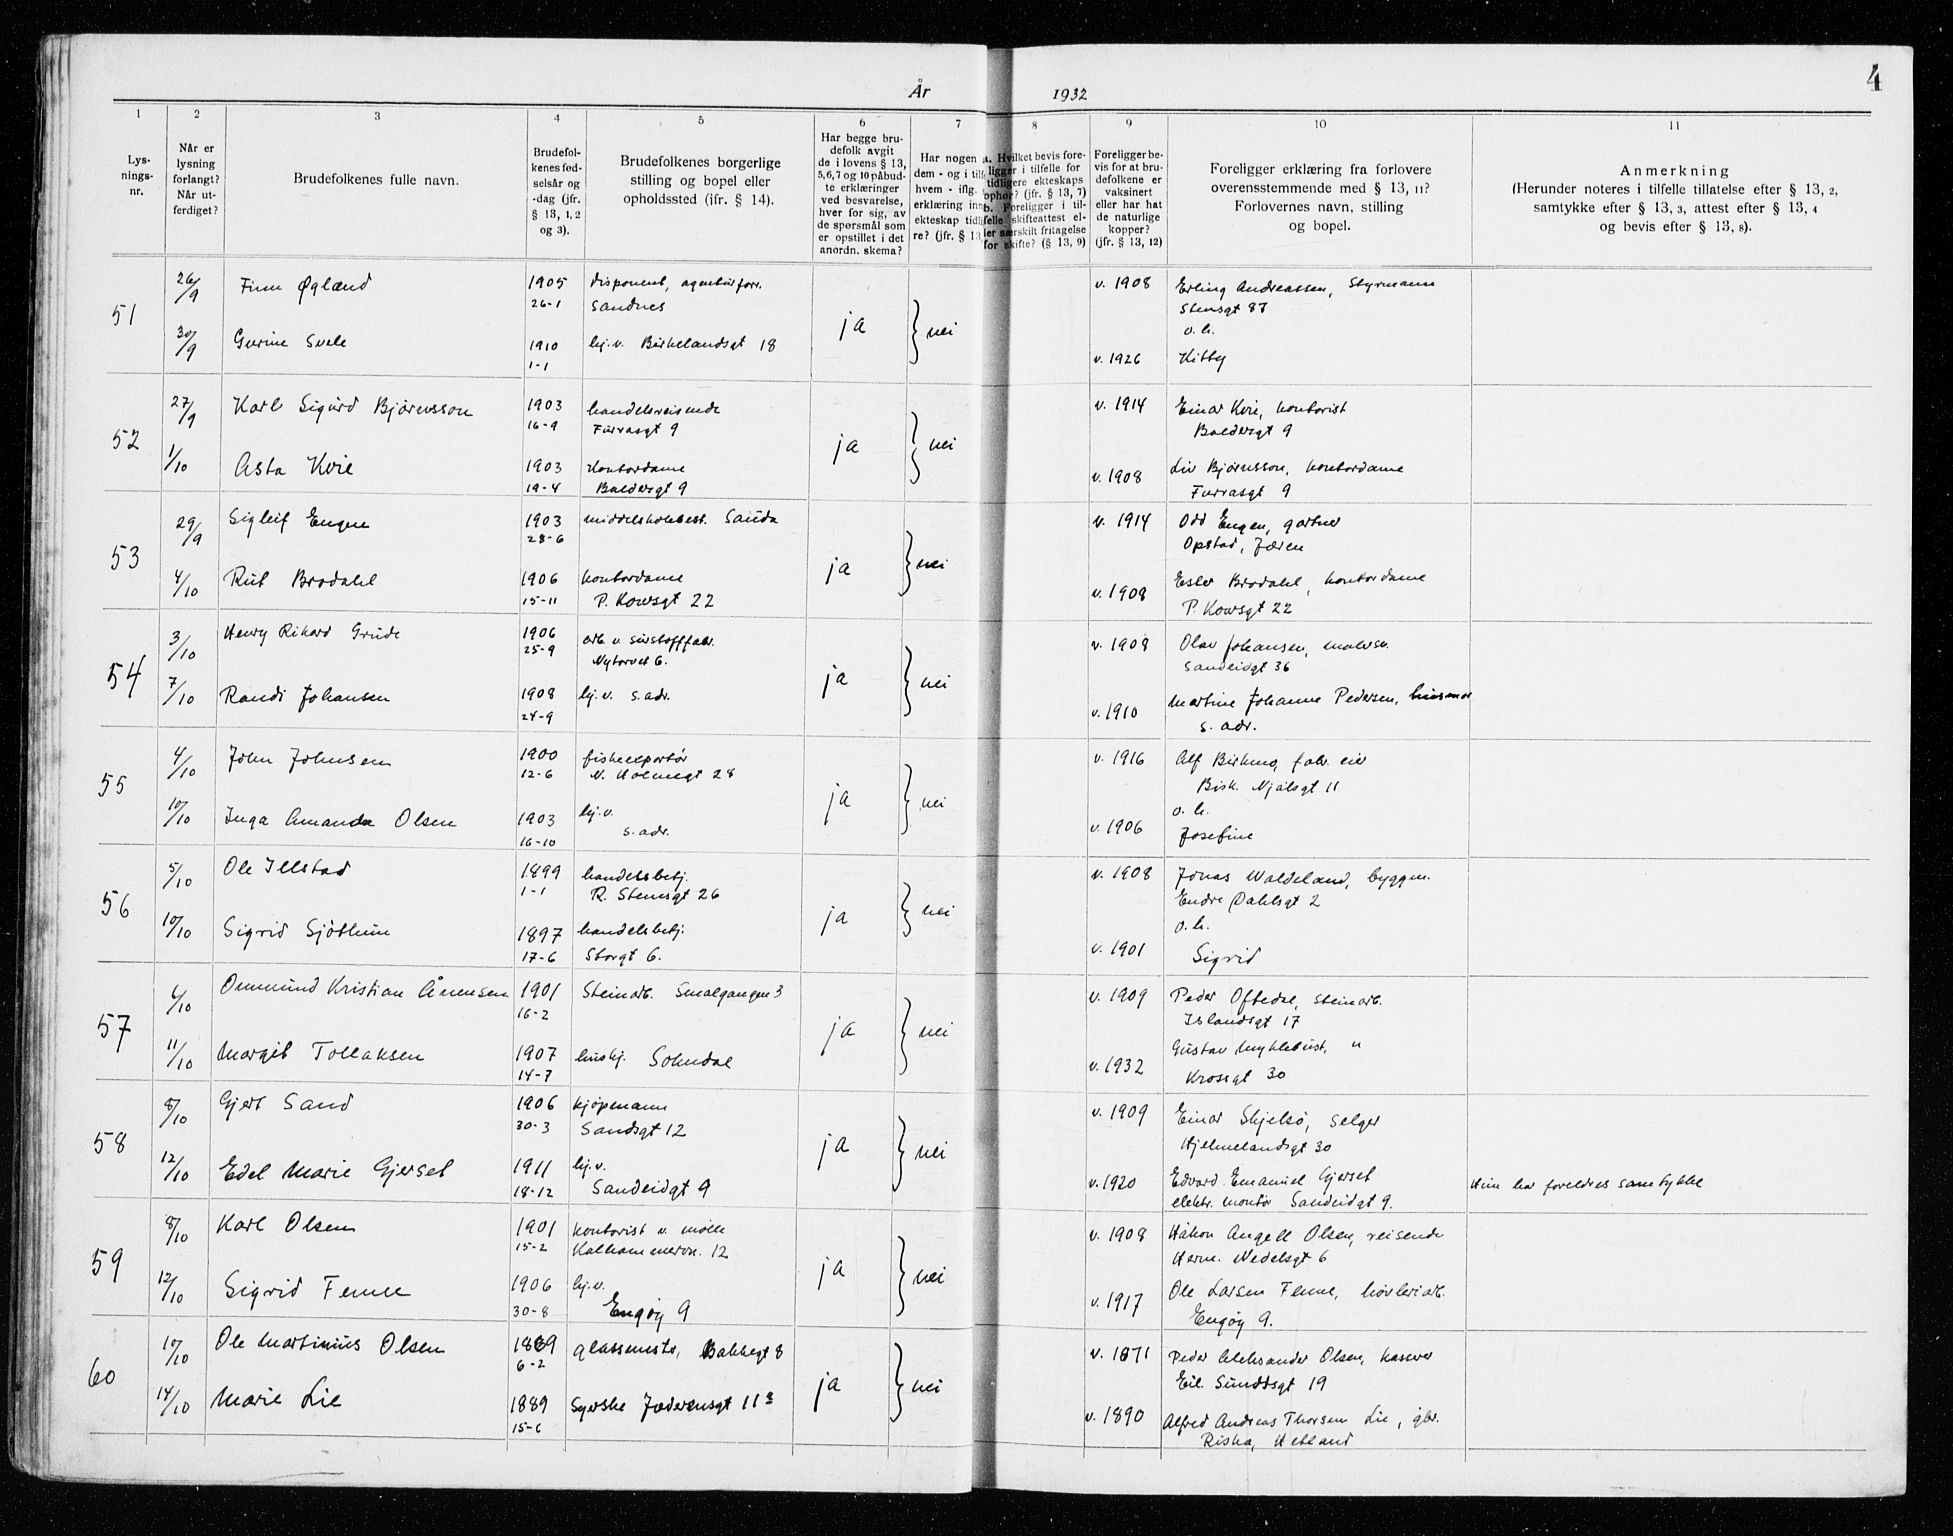 År 1932
4
1 2 3 4 5 6 7 8 9 10 11
Lys-
nings-
nr.
Når er
lysning
forlangt?
Når ut-
ferdiget?
Brudefolkenes fulle navn.
Brudefol-
kenes fød-
selsår og
-dag (jfr.
§ 13, 1, 2
og 3).
Brudefolkenes borgerlige
stilling og bopel eller
opholdssted (jfr. § 14).
Har begge bru-
defolk avgit
de i lovens § 13,
5,6,7 og 10 påbud-
te erklæringer
ved besvarelse,
hver for sig, av
de spørsmål som
er opstillet i det
anordn. skema?
Har nogen a
dem - og i tilf
hvem - iflg.
erklæring inn
ekteskap tidl
re? (jfr. § 13
a. Hvilket bevis fore-
ligger i tilfelle for
tidligere ekteskaps
ophør? (jfr. § 13, 7)
b. Foreligger i til-
felle skifteattest el-
ler særskilt fritagelse
for skifte? (§ 13, 9)
Foreligger be-
vis for at bru-
defolkene er
vaksinert
eller har hat
de naturlige
kopper?
(jfr. § 13, 12)
Foreligger erklæring fra forlovere
overensstemmende med § 13, 11?
Forlovernes navn, stilling
og bopel.
Anmerkning
(Herunder noteres i tilfelle tillatelse efter § 13, 2,
samtykke efter § 13, 3, attest efter § 13, 4
og bevis efter § 13, 8).
51 26/9 Finn Øglænd 1905 disponent, agenturforr. v. 1908 Erling Andreassen, Styrmann
26-1 Sandnes Stensgt 87
ja nei o.h.
30/9 Gurine Svele 1910 hj.v. Birkelandsgt 18 v. 1926 Kitty
1-1
52 27/9 Karl Sigurd Bjørnsson 1903 handelsreisende v. 1914 Einar Kvie, kontorist
16-9 Furrasgt 9 Baldersgt 9
ja nei
1/10 Asta Kvie 1903 Kontordame v. 1908 Liv Bjørnsson, kontordame
19-4 Baldersgt 9 Furrasgt 9
53 29/9 Sigleif Engen 1903 middelskolebest. Sauda v. 1914 Odd Engen, gartner
28-6 Opstad, Jæren
ja nei
4/10 Rut Brodahl 1906 kontordame v. 1908 Ester Brodahl, kontordame
15-11 P. Kowsgt 22 P. Kowsgt 22
54 3/10 Henry Rikard Grude 1906 arb. v. surstoffabr. v. 1908 Olav Johansen, malersv.
25-9 Nytorvet 6. Sandeidgt 36
ja nei
7/10 Randi Johansen 1908 hj.v. s. adr. v. 1910 Martine Johanne Pedersen, husmor
24-9 s. adr.
55 4/10 John Johnsen 1900 fiskeeksportør v. 1916 Alf Birking fabr. eier
12-6 N. Holmegt 28 Bisk. Njålsgt 11
ja nei o.h.
10/10 Inga Amanda Olsen 1903 hj.v. v. 1906 Josefine
16-10 s. adr.
56 5/10 Ole Illstad 1899 handelsbetj. v. 1908 Jonas Waldeland, byggm.
1-1 R. Stensgt 26 Endre Dahlsgt 2
ja nei o.h.
10/10 Sigrid Sjøthun 1897 handelsbetj. v. 1901 Sigrid
17-6 Storgt 6.
57 6/10 Ommund Kristian Ånensen 1901 Steinarb. Smalgangen 3 v. 1909 Peder Oftedal, steinarb.
16-2 Islandsgt 17
ja nei
11/10 Margit Tollaksen 1907 hushj. Sokndal v. 1932 Gustav Myklebust, "
14-7 Krossgt 30
58 8/10 Gjert Sand 1906 kjøpmann v. 1909 Einar Skjelsø, selger
30-3 Sandsgt 12 Hjelmelandsgt 30
ja nei
12/10 Edel Marie Gjerset 1911 hj.v. v. 1920 Edvard Emanuel Gjerset Hun har foreldres samtykke
18-12 Sandeidgt 9 elektr. montør Sandeidgt 9.
59 8/10 Karl Olsen 1901 kontorist v. mølle v. 1908 Håkon Angell Olsen, reisende
15-2 Kalhammervn. 12 Herm. Wedelsgt 6
ja nei
12/10 Sigrid Fenne 1906 hj.v. v. 1917 Ole Larsen Fenne, høvleriarb.
30-8 Engøy 9 Engøy 9.
60 10/10 Ole Martinius Olsen 1869 glassmstr, Bakkegt 8 v. 1871 Peder Aleksander Olsen, kasser
6-2 Eil. Sundtsgt 19
ja nei
14/10 Marie Lie 1889 Syerske Jæderensgt 11 v. 1890 Alfred Andreas Thorsen Lie, gbr.
15-6 Riska, Hetland